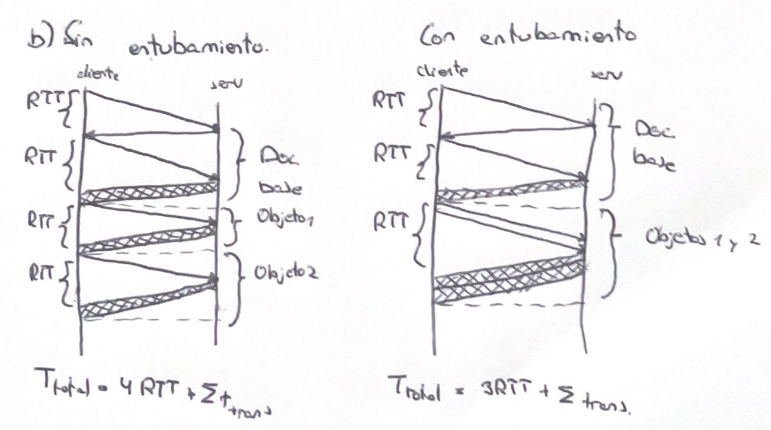 b) Sin entubamiento.
cliente serv
RTT
RTT
Doc
base
RTT
Objeto1
RTT
Objeto2
Ttotal = 4 RTT + Σ t trans
Con entubamiento
cliente serv
RTT
Doc
base
RTT
RTT
Objetos 1 y 2
Ttotal = 3RTT + Σ trans.